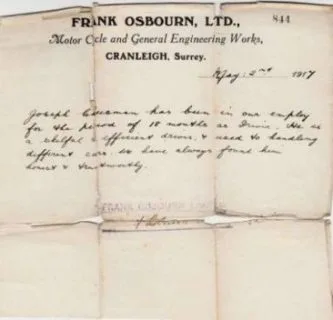 FRANK OSBOURN, LTD., 844
Motor Cycle and General Engineering Works,
CRANLEIGH, Surrey.
May: 2nd 1917
Joseph has been in our employ
for the period of 18 months as Driver. He is
a skilful & efficient driver, & used to handling
different cars. We have always found him
honest & trustworthy.
FRANK OSBOURN LIMITED